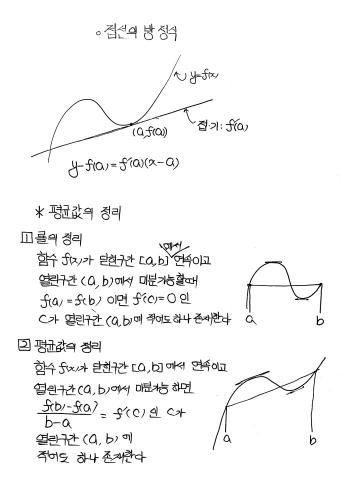 ◦ 접선의 방정식
y=f(x)
(a,f(a))
접기: f'(a)
y-f(a)=f'(a)(x-a)
* 평균값의 정리
1 롤의 정리
함수 f(x)가 닫힌구간 [a,b]에서 연속이고
열린구간 (a,b)에서 미분가능할때
f(a)=f(b) 이면 f'(c)=0 인
c가 열린구간 (a,b)에 적어도 하나 존재한다
a b
2 평균값의 정리
함수 f(x)가 닫힌구간 [a,b]에서 연속이고
열린구간 (a,b)에서 미분가능 하면
f(b)-f(a)/b-a = f'(c) 인 c가
열린구간 (a,b)에
적어도 하나 존재한다
a b